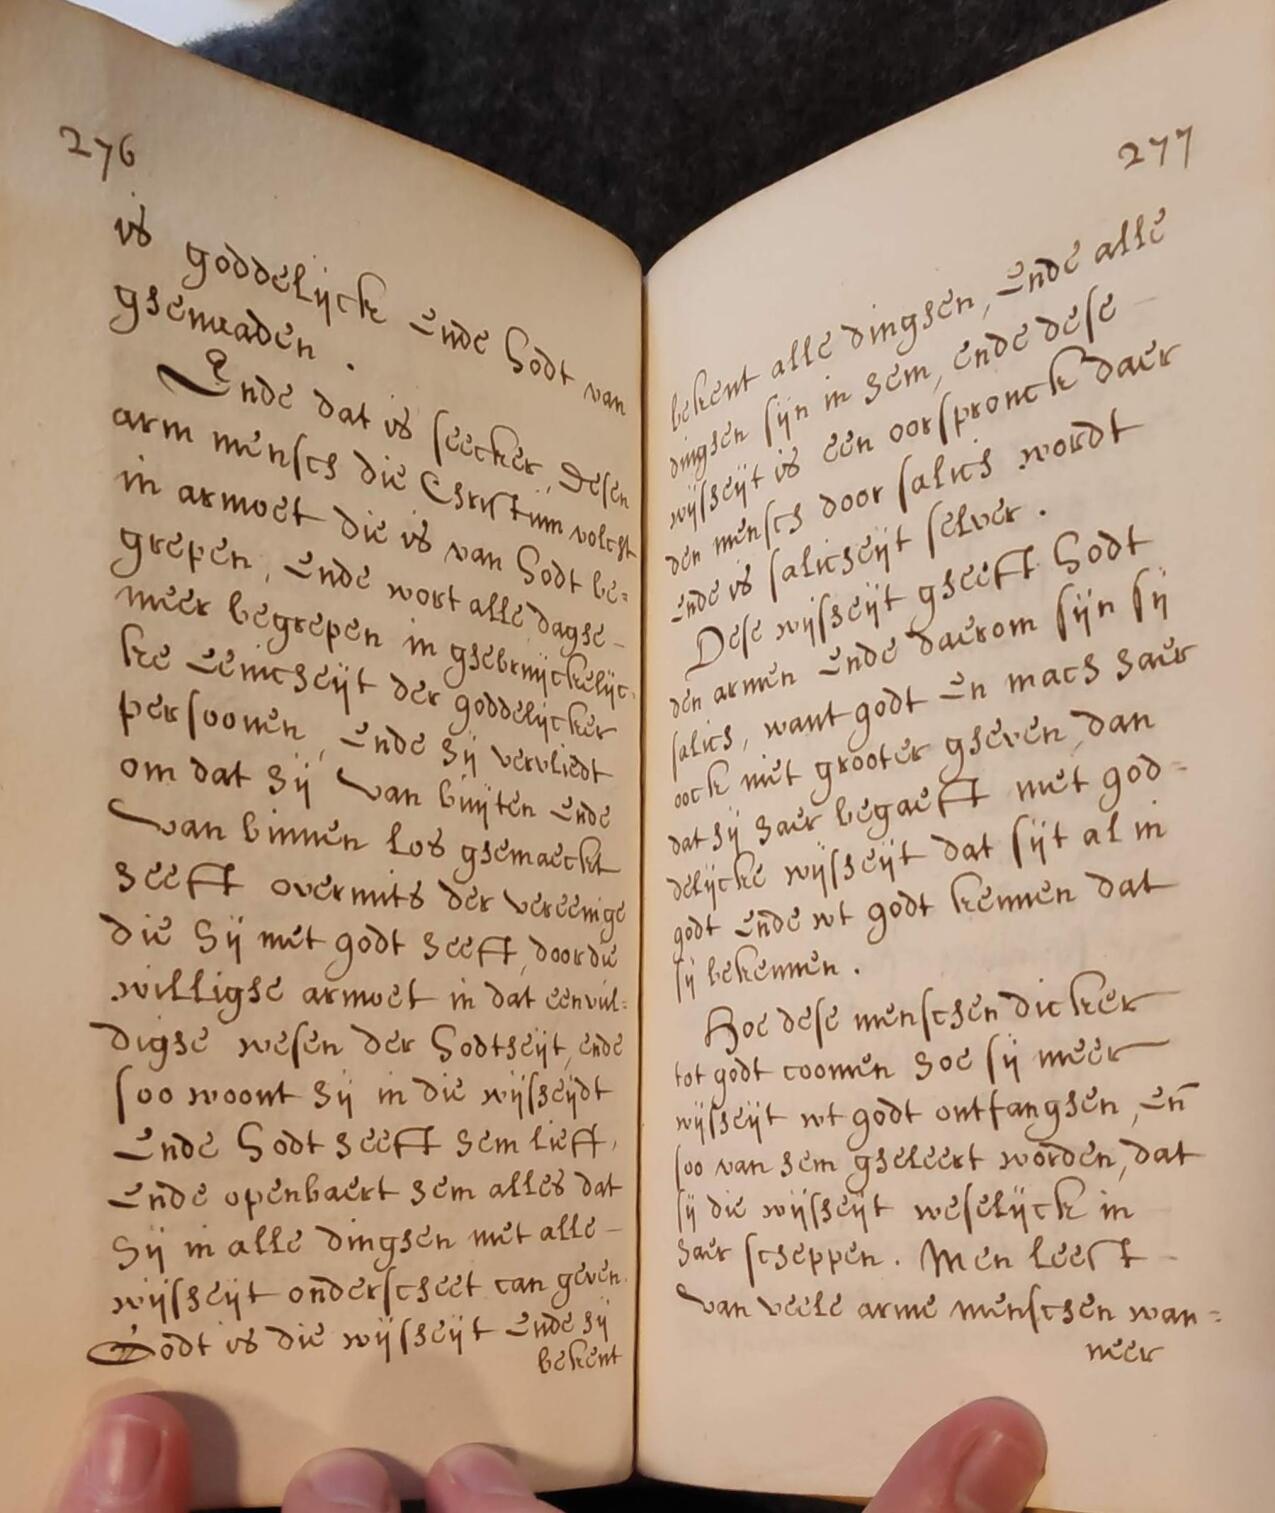 276
is goddelijck ende Godt van
ghenaaden.
Ende dat is seecker, desen
arm mensch die Christum volcht
in armoet die is van Godt be=
grepen, ende wort alle daghe
meer begrepen in ghebruijckelijc=
ke eenicheijt der goddelijcker
persoonen, ende hij vervliedt
om dat hij van buijten ende
van binnen los ghemaeckt
heefft overmits der vereenige
die hij met godt heefft, door die
willighe armoet in dat eenvul=
dighe wesen der Godtheijt, ende
soo woont hij in die wijsheijdt
ende Godt heefft hem lieff,
ende openbaert hem alles dat
hij in alle dinghen met alle
wijsheijt onderscheet can geven.
Godt is die wijsheijt ende hij
bekent
277
bekent alle dinghen, ende alle
dinghen sijn in hem, ende dese
wijsheijt is een oorspronck daer
den mensch door salich wordt
ende is salicheijt selver.
Dese wijsheijt gheefft Godt
den armen ende daerom sijn sij
salich, want godt en mach haer
oock niet grooter gheven, dan
dat hij haer begaefft met god=
delijcke wijsheijt dat sijt al in
godt ende wt godt kennen dat
sij bekennen.
Hoe dese menschen dicker
tot godt coomen hoe sij meer
wijsheijt wt godt ontfanghen, en̄
soo van hem gheleert worden, dat
sij die wijsheijt weselijck in
haer scheppen. Men leest
van veele arme menschen wan=
neer